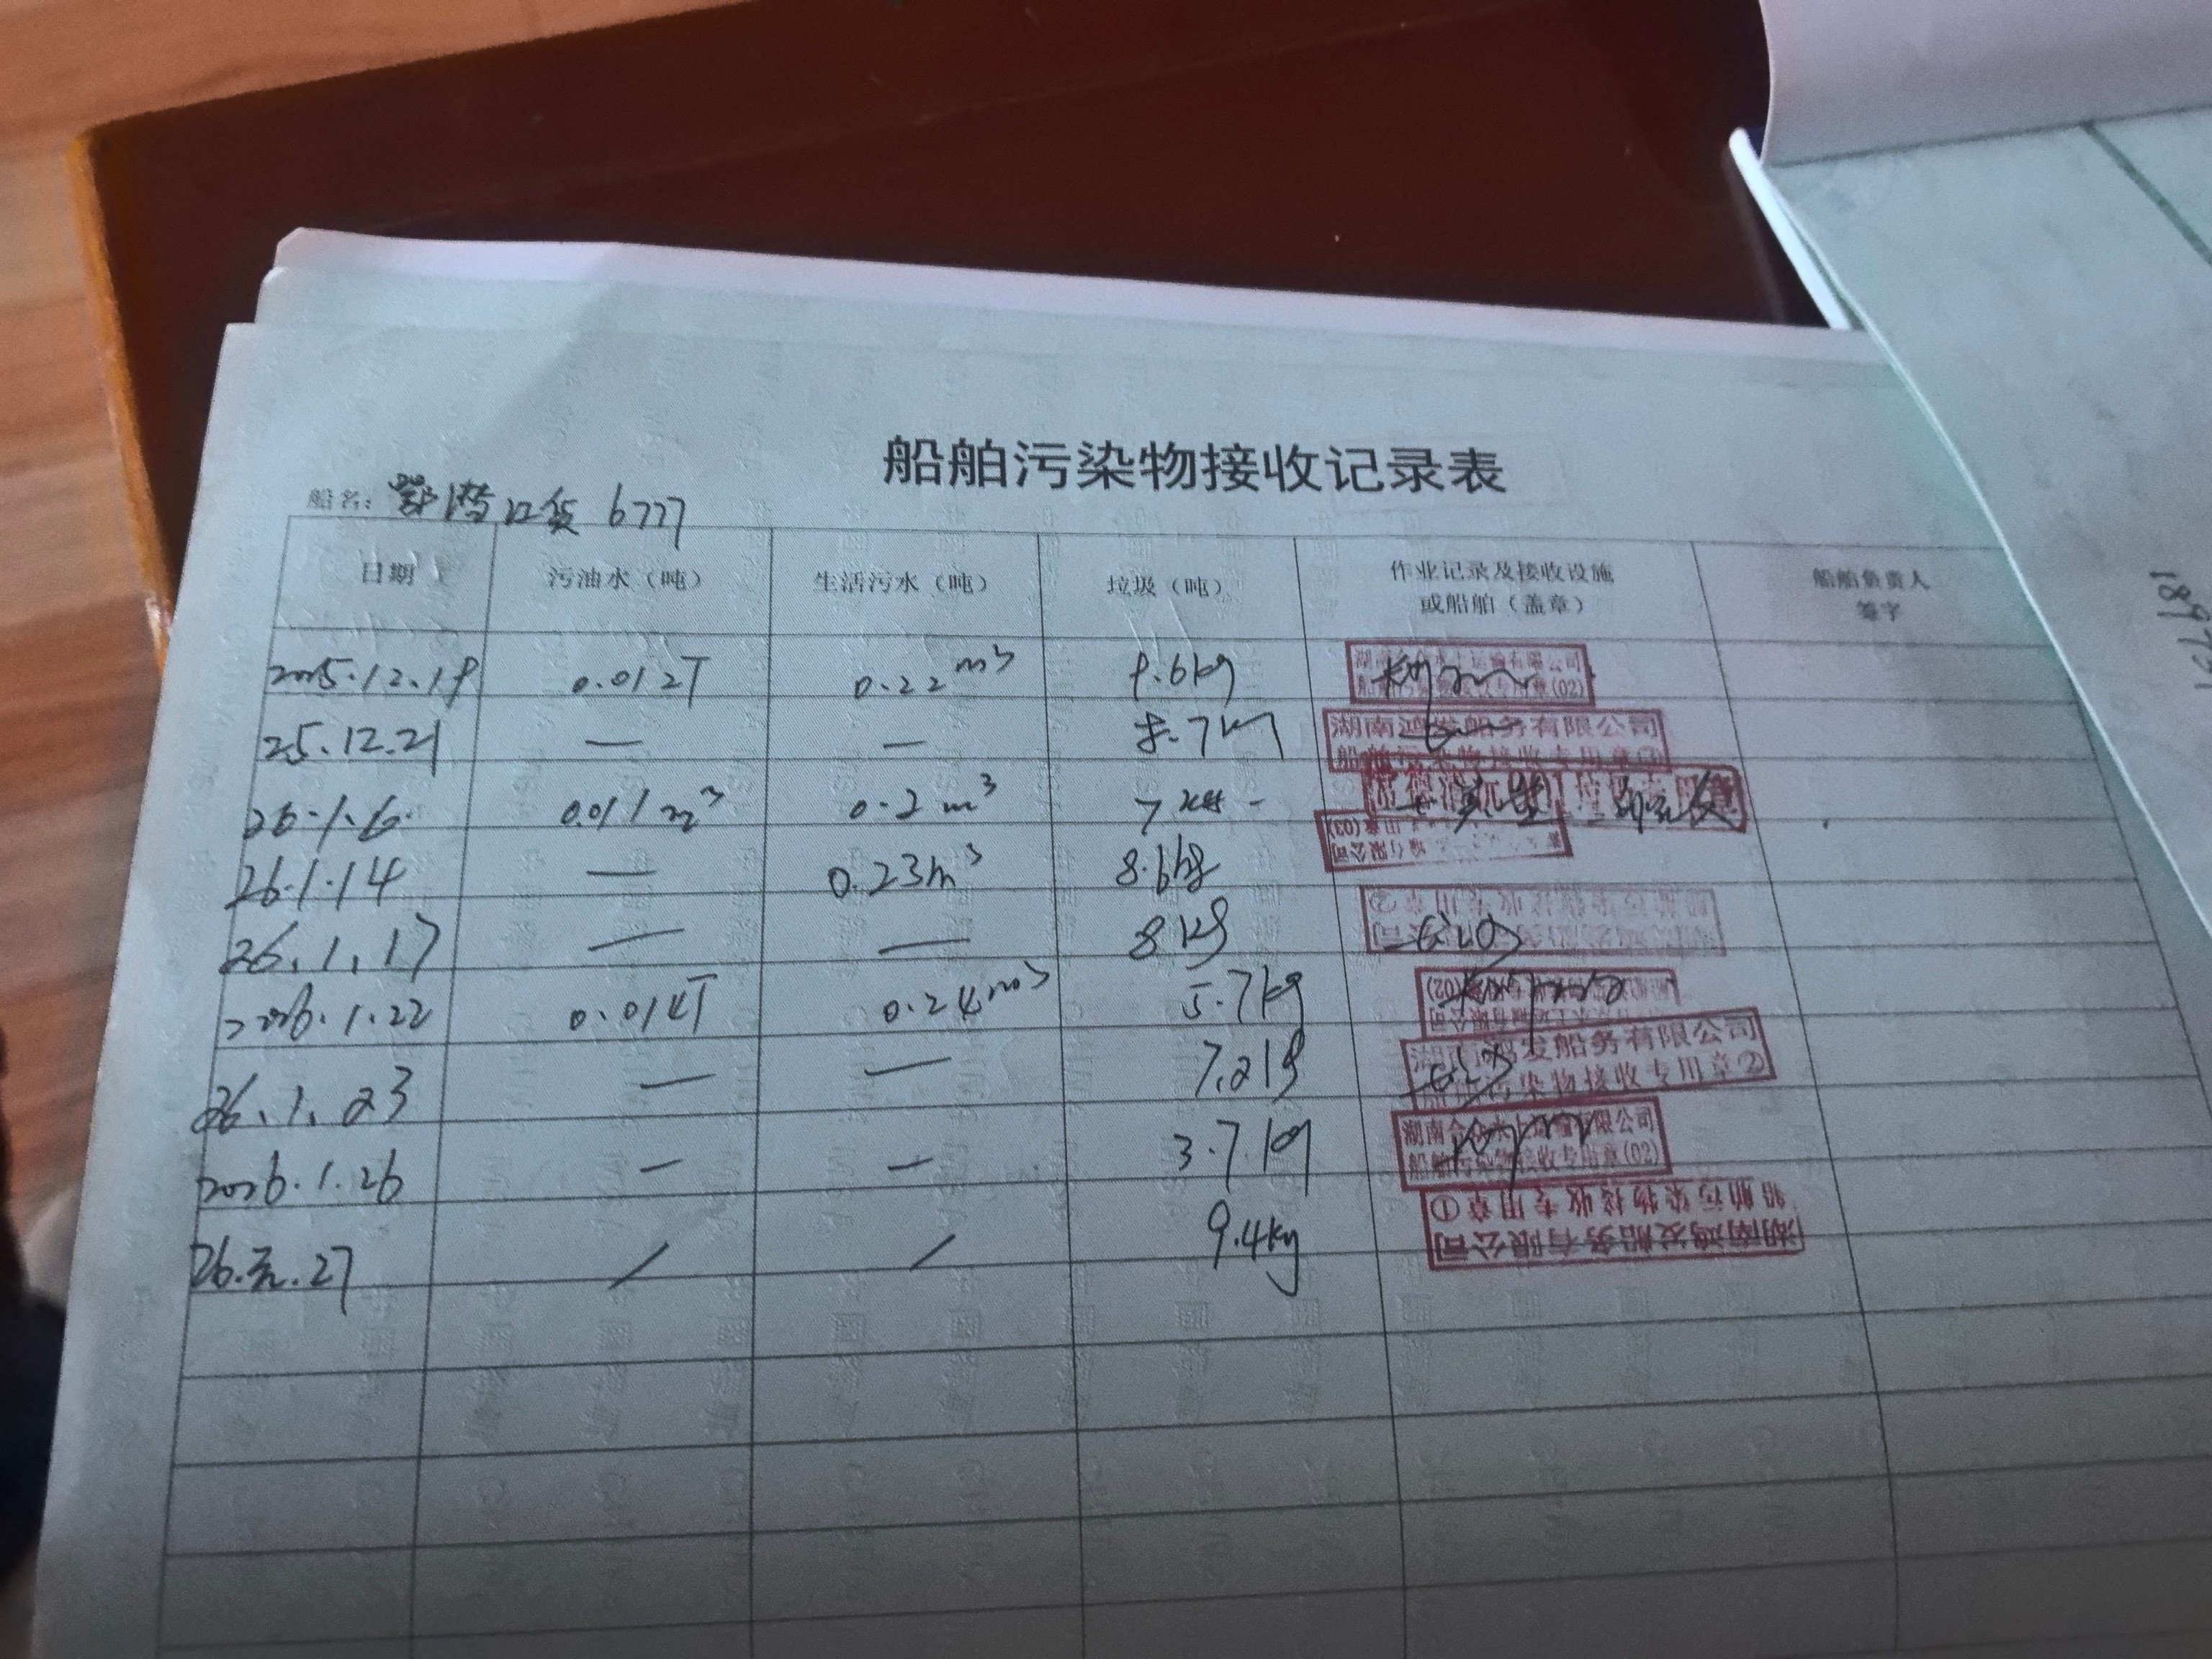 船舶污染物接收记录表
船名: 鄂潜江货 6777
日期 污油水（吨） 生活污水（吨） 垃圾（吨） 作业记录及接收设施或船舶（盖章） 船舶负责人签字
2025.12.19 0.012T 0.22m³ 9.6kg 船舶污染物接收专用章(02)
25.12.21 — — 8.7kg 湖南鸿发船务有限公司 船舶污染物接收专用章
26.1.6 0.011m³ 0.2m³ 7kg
26.1.14 — 0.23m³ 8.6kg (03)
26.1.17 — — 8kg 船舶污染物接收专用章②
2026.1.22 0.014T 0.24m³ 5.7kg (02)
26.1.23 — — 7.2kg 湖南鸿发船务有限公司 船舶污染物接收专用章②
2026.1.26 — — 3.7kg 船舶污染物接收专用章(02)
26.元.27 / / 9.4kg 湖南鸿发船务有限公司 船舶污染物接收专用章①